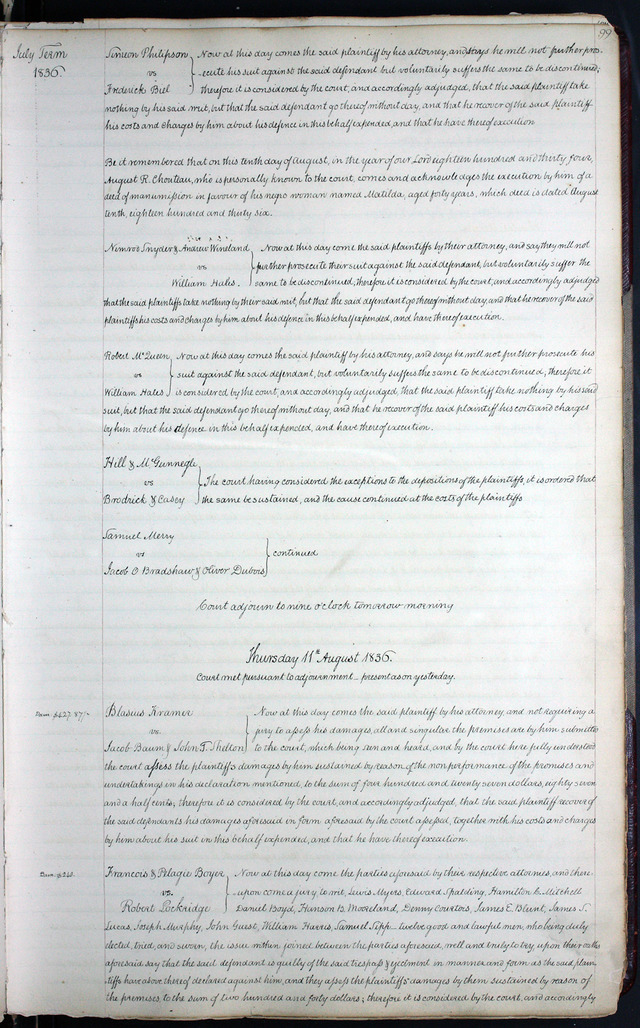 99
July Term
1836
Simeon Philipson
vs
Frederick Biel
Now at this day comes the said plaintiff by his attorney, and says he will not further pros-
ecute his suit against the said defendant but voluntarily suffers the same to be discontinued;
therefore it is considered by the court, and accordingly adjudged, that the said plaintiff take
nothing by his said writ, but that the said defendant go thereof without day, and that he recover of the said plaintiff
his costs and charges by him about his defence in this behalf expended, and that he have thereof execution.
Be it remembered that on this tenth day of August, in the year of our Lord eighteen hundred and thirty four,
August R. Chouteau, who is personally known to the court, comes and acknowledges the execution by him of a
deed of manumission in favour of his negro woman named Matilda, aged forty years, which deed is dated August
tenth, eighteen hundred and thirty six.
Nimrod Snyder & Andrew Wineland
vs
William Hales.
Now at this day come the said plaintiffs by their attorney, and say they will not
further prosecute their suit against the said defendant, but voluntarily suffer the
same to be discontinued; therefore it is considered by the court, and accordingly adjudged
that the said plaintiffs take nothing by their said writ, but that the said defendant go thereof without day, and that he recover of the said
plaintiffs his costs and charges by him about his defence in this behalf expended, and have thereof execution.
Robert McQueen
vs
William Hales
Now at this day comes the said plaintiff by his attorney, and says he will not further prosecute his
suit against the said defendant, but voluntarily suffers the same to be discontinued; therefore it
is considered by the court, and accordingly adjudged, that the said plaintiff take nothing by his said
suit, but that the said defendant go thereof without day, and that he recover of the said plaintiff his costs and charges
by him about his defence in this behalf expended, and have thereof execution.
Hill & McGunnegle
vs
Brodrick & Casey
The court having considered the exceptions to the depositions of the plaintiffs, it is ordered that
the same be sustained, and the cause continued at the costs of the plaintiffs
Samuel Merry
vs
Jacob O Bradshaw & Oliver Dubois
continued
Court adjourn to nine o'clock tomorrow morning
Thursday 11th August 1836.
Court met pursuant to adjournment - present as on yesterday.
Dam. $427.87½
Blasius Kramer
vs.
Jacob Baum & John T. Shelton
Now at this day comes the said plaintiff by his attorney, and not requiring a
jury to assess his damages, all and singular the premises are by him submitted
to the court, which being seen and heard, and by the court here fully understood
the court assess the plaintiff's damages by him sustained by reason of the non performance of the promises and
undertakings in his declaration mentioned, to the sum of four hundred and twenty seven dollars, eighty seven
and a half cents; therefore it is considered by the court, and accordingly adjudged, that the said plaintiff recover of
the said defendants his damages aforesaid in form aforesaid by the court assessed, together with his costs and charges
by him about his suit in this behalf expended, and that he have thereof execution.
Dam. $240.
Francois & Pelagie Boyer
vs.
Robert Lockridge
Now at this day come the parties aforesaid by their respective attornies, and there-
upon come a jury to wit, Lewis Myers, Edward Spalding, Hamilton C. Mitchell
Daniel Boyd, Hanson B. Mooreland, Denny Courtors, James E. Blunt, James S.
Lucas, Joseph Murphy, John Guest, William Harris, Samuel Tipp twelve good and lawful men, who being duly
elected, tried, and sworn, the issue within joined between the parties aforesaid, well and truly to try, upon their oaths
aforesaid say that the said defendant is guilty of the said trespass & ejectment in manner and form as the said plain-
tiffs have above thereof declared against him, and they assess the plaintiffs damages by them sustained by reason of
the premises to the sum of two hundred and forty dollars; therefore it is considered by the court, and accordingly